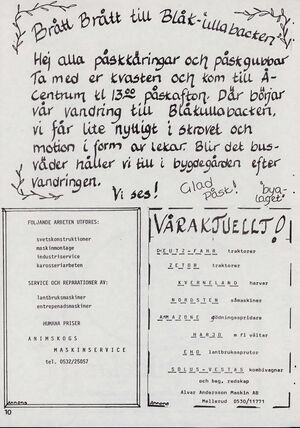 Brått Brått till Blåk-ullabacken
Hej alla påskkäringar och påskgubbar
Ta med er kvasten och kom till Å-
Centrum kl 13.00 påskafton. Där börjar
vår vandring till Blåkullabacken,
vi får lite nyttigt i skrovet och
motion i form av lekar. Blir det bus-
väder håller vi till i bygdegården efter
vandringen.
Vi ses!
Glad Påsk!
"bya-
laget"
FÖLJANDE ARBETEN UTFÖRES:
svetskonstruktioner
maskinmontage
industriservice
karosseriarbeten
SERVICE OCH REPARATIONER AV:
lantbruksmaskiner
entreprenadsmaskiner
HUMANA PRISER
ANIMSKOGS
MASKINSERVICE
tel. 0532/25057
annons
VÅRAKTUELLT!
DEUTZ-FAHR traktorer
ZETOR traktorer
KVERNELAND harvar
NORDSTEN såmaskiner
AMMAZONE gödningsspridare
HARJO m fl vältar
EHO lantbrukssprutor
SOLUS-VESTAS kombivagnar
och beg. redskap
Alvar Andersson Maskin AB
Mellerud 0530/11771
annons
10